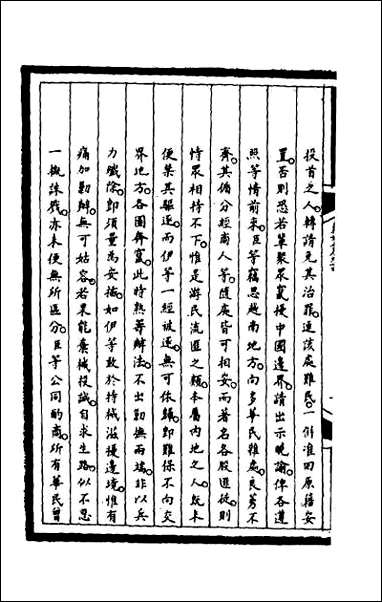 投首之人轉請免其治罪連該處難民一併准回原籍安
置否則恐若輩聚眾竄擾中國邊界請出示曉諭俾各遵
照等情前來臣等竊思越南地方向多華民雜處良莠不
齊其備分經商人等隨處皆可相安而著名各股匪徒則
恃眾相持不下惟是游民流匪之類本屬內地之人既未
便禁其驅逐而伊等一經被逐無可依歸即難保不向交
界地方各圖奔竄此時熟籌辦法不出勦撫兩端非以兵
力殲除即須量為安插如伊等敢於持械滋擾邊境惟有
痛加勦辦無可姑容若果能棄械投誠自求生路似不忍
一概誅戮亦未便無所區分臣等公同酌商所有華民曾